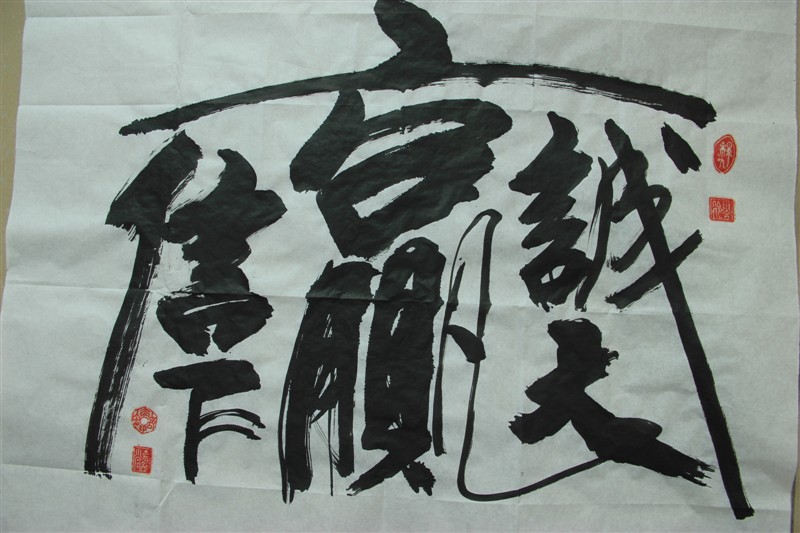 誠信贏天下